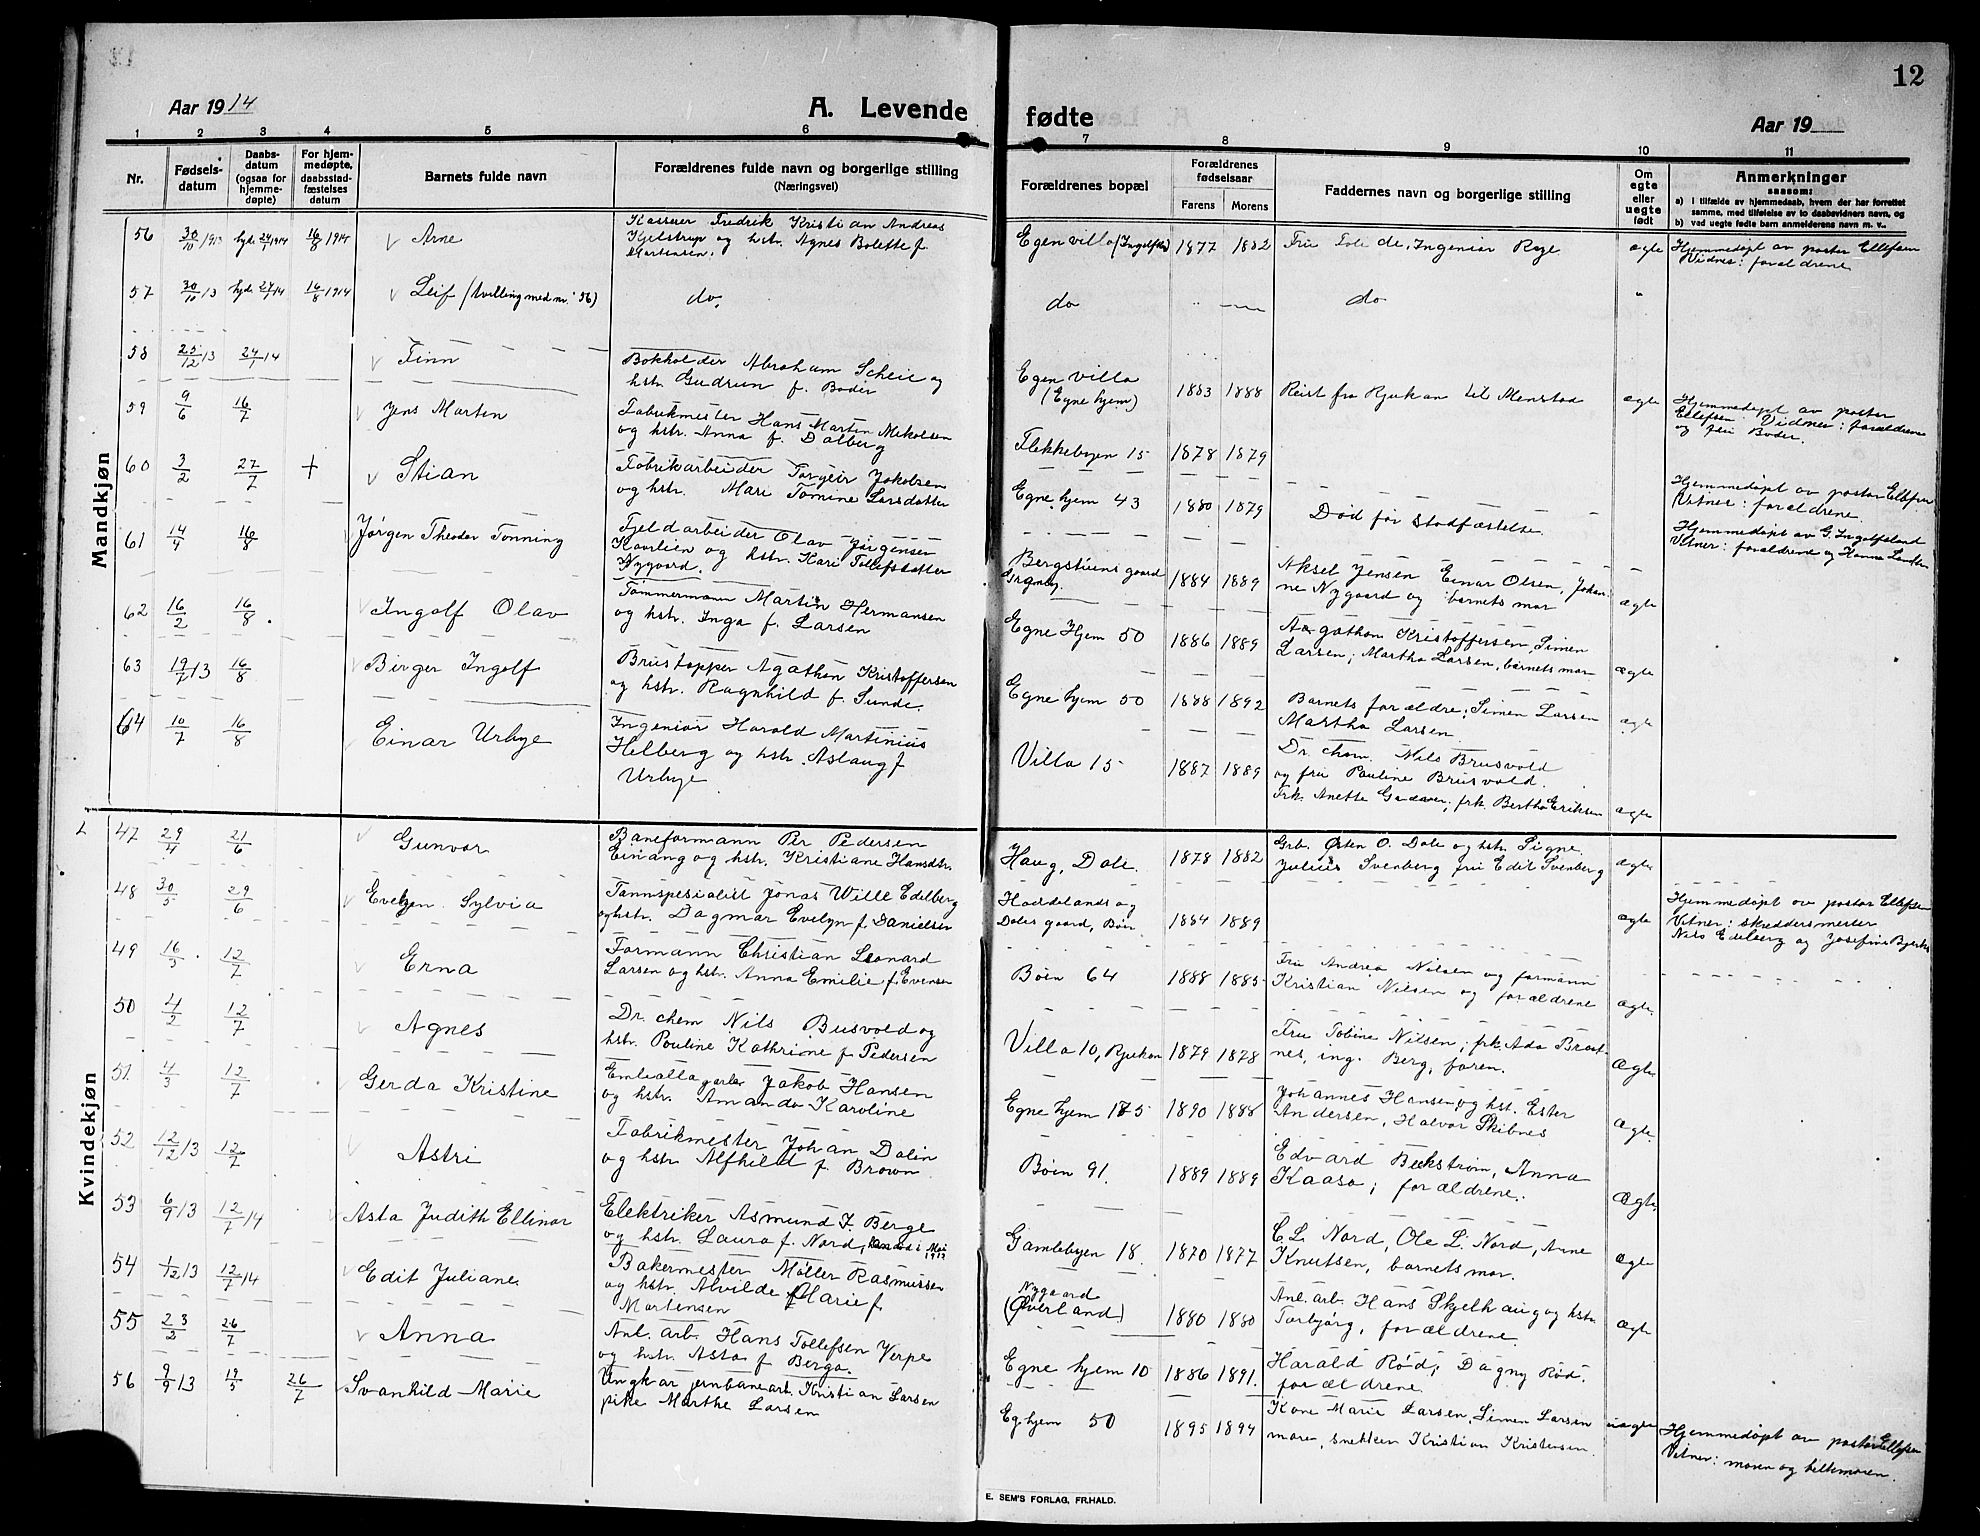 12
Aar 1914
A. Levende
fødte
Aar 19
1 2 3 4 5 6 7 8 9 10 11
Nr.
Fødsels-
datum
Daabs-
datum
(ogsaa for
hjemme-
døpte)
For hjem-
medøpte,
daabsstad-
fæstelses
datum
Barnets fulde navn
Forældrenes fulde navn og borgerlige stilling
(Næringsvei)
Forældrenes bopæl
Forældrenes
fødselsaar
Farens Morens
Faddernes navn og borgerlige stilling
Om
egte
eller
uegte
født
Anmerkninger
saasom:
a) i tilfælde av hjemmedaab, hvem der har forrettet
samme, med tilføielse av to daabsvidners navn, og
b) ved uegte fødte barn anmelderens navn m. v..
Mandkjøn
56 30/10 1913 hjd. 24/1 1914 16/8 1914 Arne
Kasserer Fredrik Kristian Andreas
Kjelstrup og hstr. Agnes Bolette f.
Martensen.
Egen villa 1877 1882 ægte
Hjemmedøpt av pastor Ellefsen
Vidner: forældrene
57 30/10 13 hjd. 24/1 14 16/8 1914 Leif (tvilling med nr. 56) do.
do do "
58 25/12 13 24/1 14 Finn
Bokholder Abraham Scheie og
hstr. Gudrun f. Boder
Egen villa
(Egne hjem) 1883 1888 Reist fra Rjukan til Menstad ægte
Hjemmedøpt av pastor
Ellefsen. Vidner: forældrene
og fru Boder.
59 9/6 16/7 Jens Martin
Fabrikmester Hans Martin Mikolsen
og hstr. Anna f. Dalberg
Flekkebyen 15 1878 1879
60 3/2 27/7 + Stian
Fabrikarbeider Torgeir Jakobsen
og hstr. Mari Tomine Larsdatter
Egne hjem 43 1880 1879 Død før stadfæstelse.
Hjemmedøpt av pastor Ellefsen
Vitner: forældrene.
61 14/4 16/8 Jørgen Theodor Tønning
Fjeldarbeider Olav Jørgensen
og hstr. Kari Tollefsdatter
Nygaard.
Bergstiens gaard
1884 1889
Aksel Jensen Einar Olsen, Johan-
ne Nygaard og barnets mor ægte
Hjemmedøpt av G. Ingolfsland
Vitner: forældrene og Hanna
62 16/2 16/8 Ingolf Olav
Tømmermann Martin Hermansen
og hstr. Inga f. Larsen
Egne Hjem 50 1886 1889
Agathon Kristoffersen, Simen
Larsen; Martha Larsen, barnets mor ægte
63 19/7 13 16/8 Birger Ingolf
Brustopper Agathon Kristoffersen
og hstr. Ragnhild f. Sunde.
Egne hjem 50 1888 1892
Barnets forældre; Simen Larsen
Martha Larsen. ægte
64 10/7 16/8 Einar Urbye
Ingeniør Harald Martinius
Helberg og hstr. Aslaug f
Urbye
Villa 15 1887 1889
Dr. chem. Nils Brusvold
og fru Pauline Brusvold.
Frk. Anette frk. Bertha Eriksen ægte
Kvindekjøn
47 29/4 21/6 Gunvor
Baneformann Per Pedersen
Einang og hstr. Kristiane Hansdtr.
Haug, Dale. 1878 1882
Grb. Østen O. Dale og hstr. Signe
Julius Svenberg fru Edit Svenberg ægte
48 30/5 29/6 Evelyn Sylvia
Tannspesialist Jonas Wille Edelberg
og hstr. Dagmar Evelyn f. Danielsen
Haddelands og
Dales gaard, Bøin 1884 1889 ægte
Hjemmedøpt av pastor Ellefsen
Vitner: skreddermester
Nils Edelberg og Josefine
49 16/3 12/7 Erna
Formann Christian Leonard
Larsen og hstr. Anna Emilie f. Evensen
Bøin 64 1888 1885
Fru Andrea Nilsen og formann
Kristian Nilsen og forældrene ægte
50 4/2 12/7 Agnes
Dr. chem Nils Busvold og
hstr. Pauline Kathrine f. Pedersen
Villa 10, Rjukan 1879 1878
Fru Tobine Nilsen; frk. Ada Braat-
nes, ing. Berg, faren. Ægte
51 4/3 12/7 Gerda Kristine
Jakob Hansen
og hstr. Amanda Karoline
Egne hjem 175 1890 1888
Johannes Hansen og hst. Ester
Andersen, Halvor Skibnes Ægte
52 12/12 13 12/7 Astri
Fabrikmester Johan Dalin
og hstr. Alfhild f. Brown.
Bøin 91. 1889 1889
Edvard Beckstrøm, Anna
Kaasa; forældrene. Ægte
53 6/9 13 12/7 14 Asta Judith Ellinor
Elektriker Asmund J. Berge
og hstr. Laura f. Nord,
Gamlebyen 18. 1870 1877
C. L. Nord, Ole L. Nord, Anne
Knutsen, barnets mor. Ægte
54 1/12 13 12/7 14 Edit Juliane
Bakermester Møller Rasmussen
og hstr. Alvilde Marie f.
Martensen
Nygaard
(Øverland) 1880 1880
Anl. arb. Hans Skjelhaug og hstr.
Torbjørg, forældrene. Ægte
55 23/2 26/7 Anna
Anl. arb. Hans Tollefsen Verpe
og hstr. Asta f Berga.
Egne hjem 10 1886 1891.
Harald Rød, Dagny Rød.
forældrene.
56 9/9 13 19/5 26/7 Svanhild Marie
Ungkar jernbanearb. Kristian Larsen
pike Marthe Larsen
Eg. hjem 50 1895 1894
Kone Marie Larsen, Simen Larsen
moren, snekker Kristian Kristensen. uægte
Hjemmedøpt av pastor Ellefsen
Vitner: moren og
E. SEM'S FORLAG, FR.HALD.